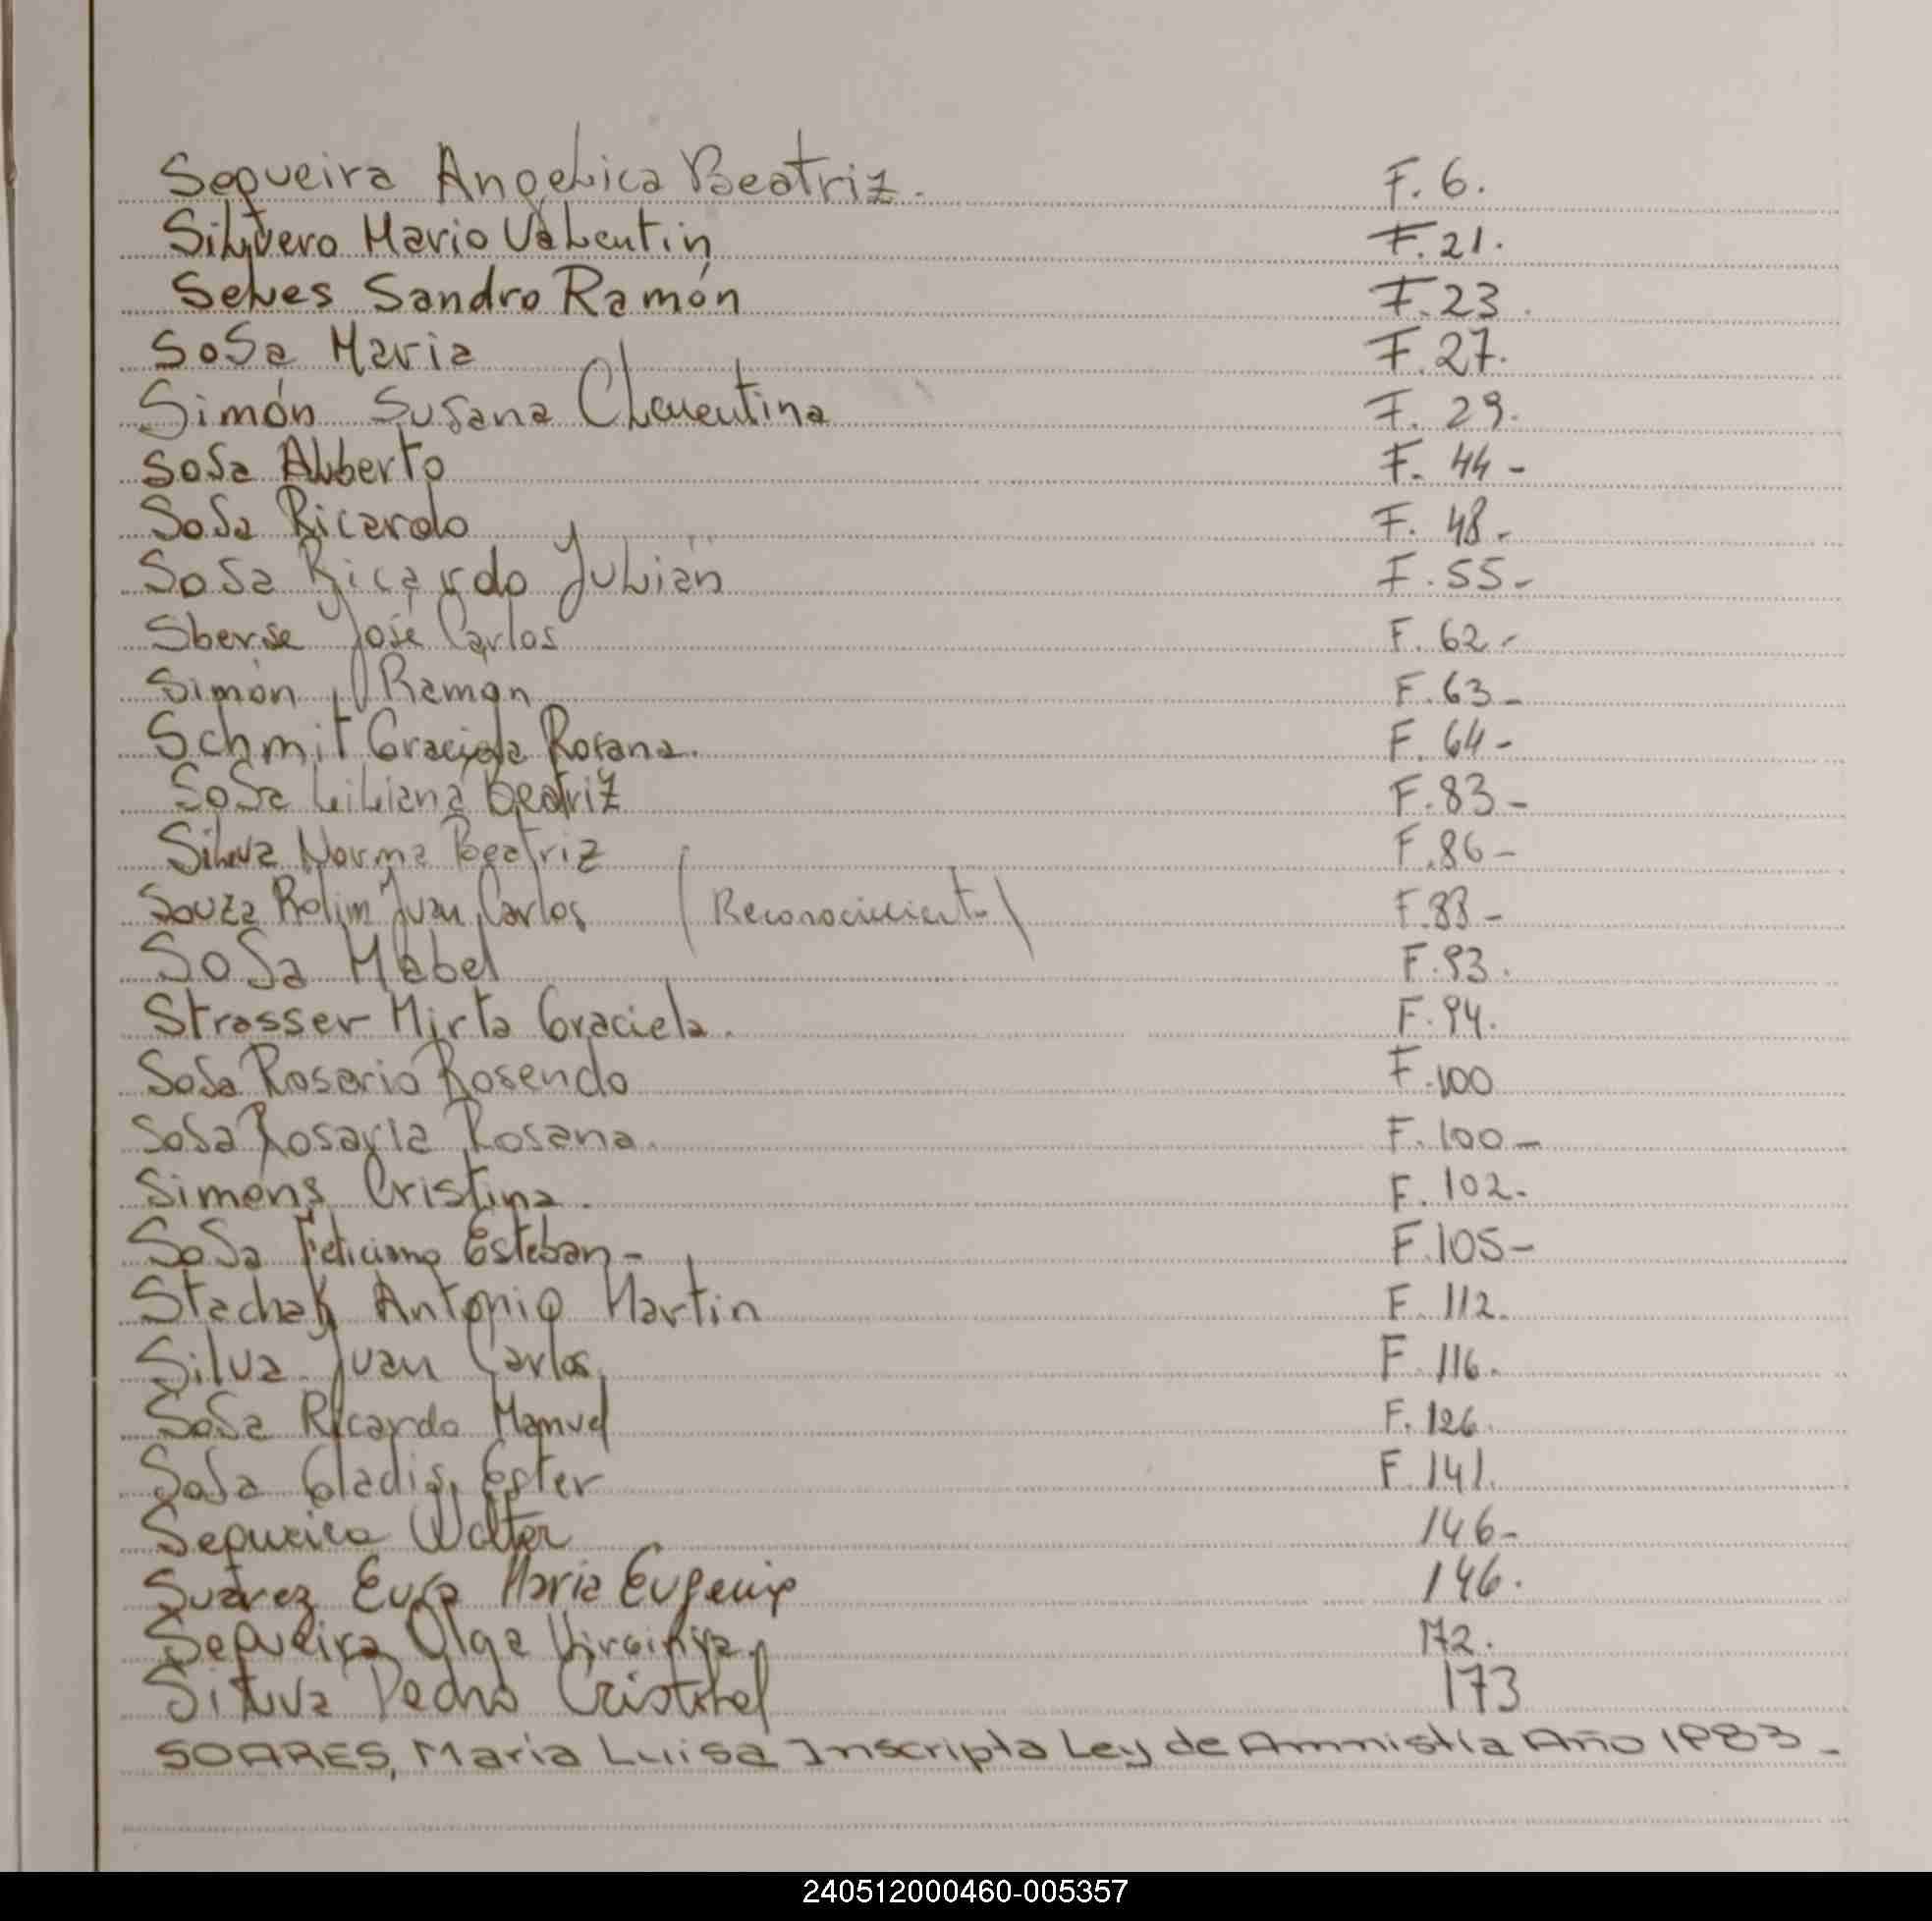 Sequeira Angelica Beatriz. F. 6.
Silvero Mario Valentin F. 21.
Selves Sandro Ramón F. 23.
Sosa Maria F. 27.
Simón Susana Clementina F. 29.
Sosa Alberto F. 44-
Sosa Ricardo F. 48-
Sosa Ricardo Julián F. 55-
Sberse José Carlos F. 62-
Simón Ramon F. 63-
Schmit Graciela Rosana. F. 64-
Sosa Liliana Beatriz F. 83-
Silva Norma Beatriz F. 86-
Souza Rolim Juan Carlos (Reconocimiento) F. 88-
Sosa Mabel F. 93.
Strasser Mirta Graciela. F. 94.
Sosa Rosario Rosendo F. 100
Sosa Rosaria Rosana. F. 100-
Simens Cristina. F. 102-
Sosa Feliciano Esteban- F. 105-
Stachak Antonio Martin F. 112.
Silva Juan Carlos F. 116.
Sosa Ricardo Manuel F. 126.
Sosa Gladis Ester F. 141.
Sequeira Walter 146-
Suárez Maria Eugenia 146.
Sequeira Olga Virginia. 172.
Silva Pedro Cristobal 173
SOARES, Maria Luisa Inscripta Ley de Amnistía Año 1983-
240512000460-005357